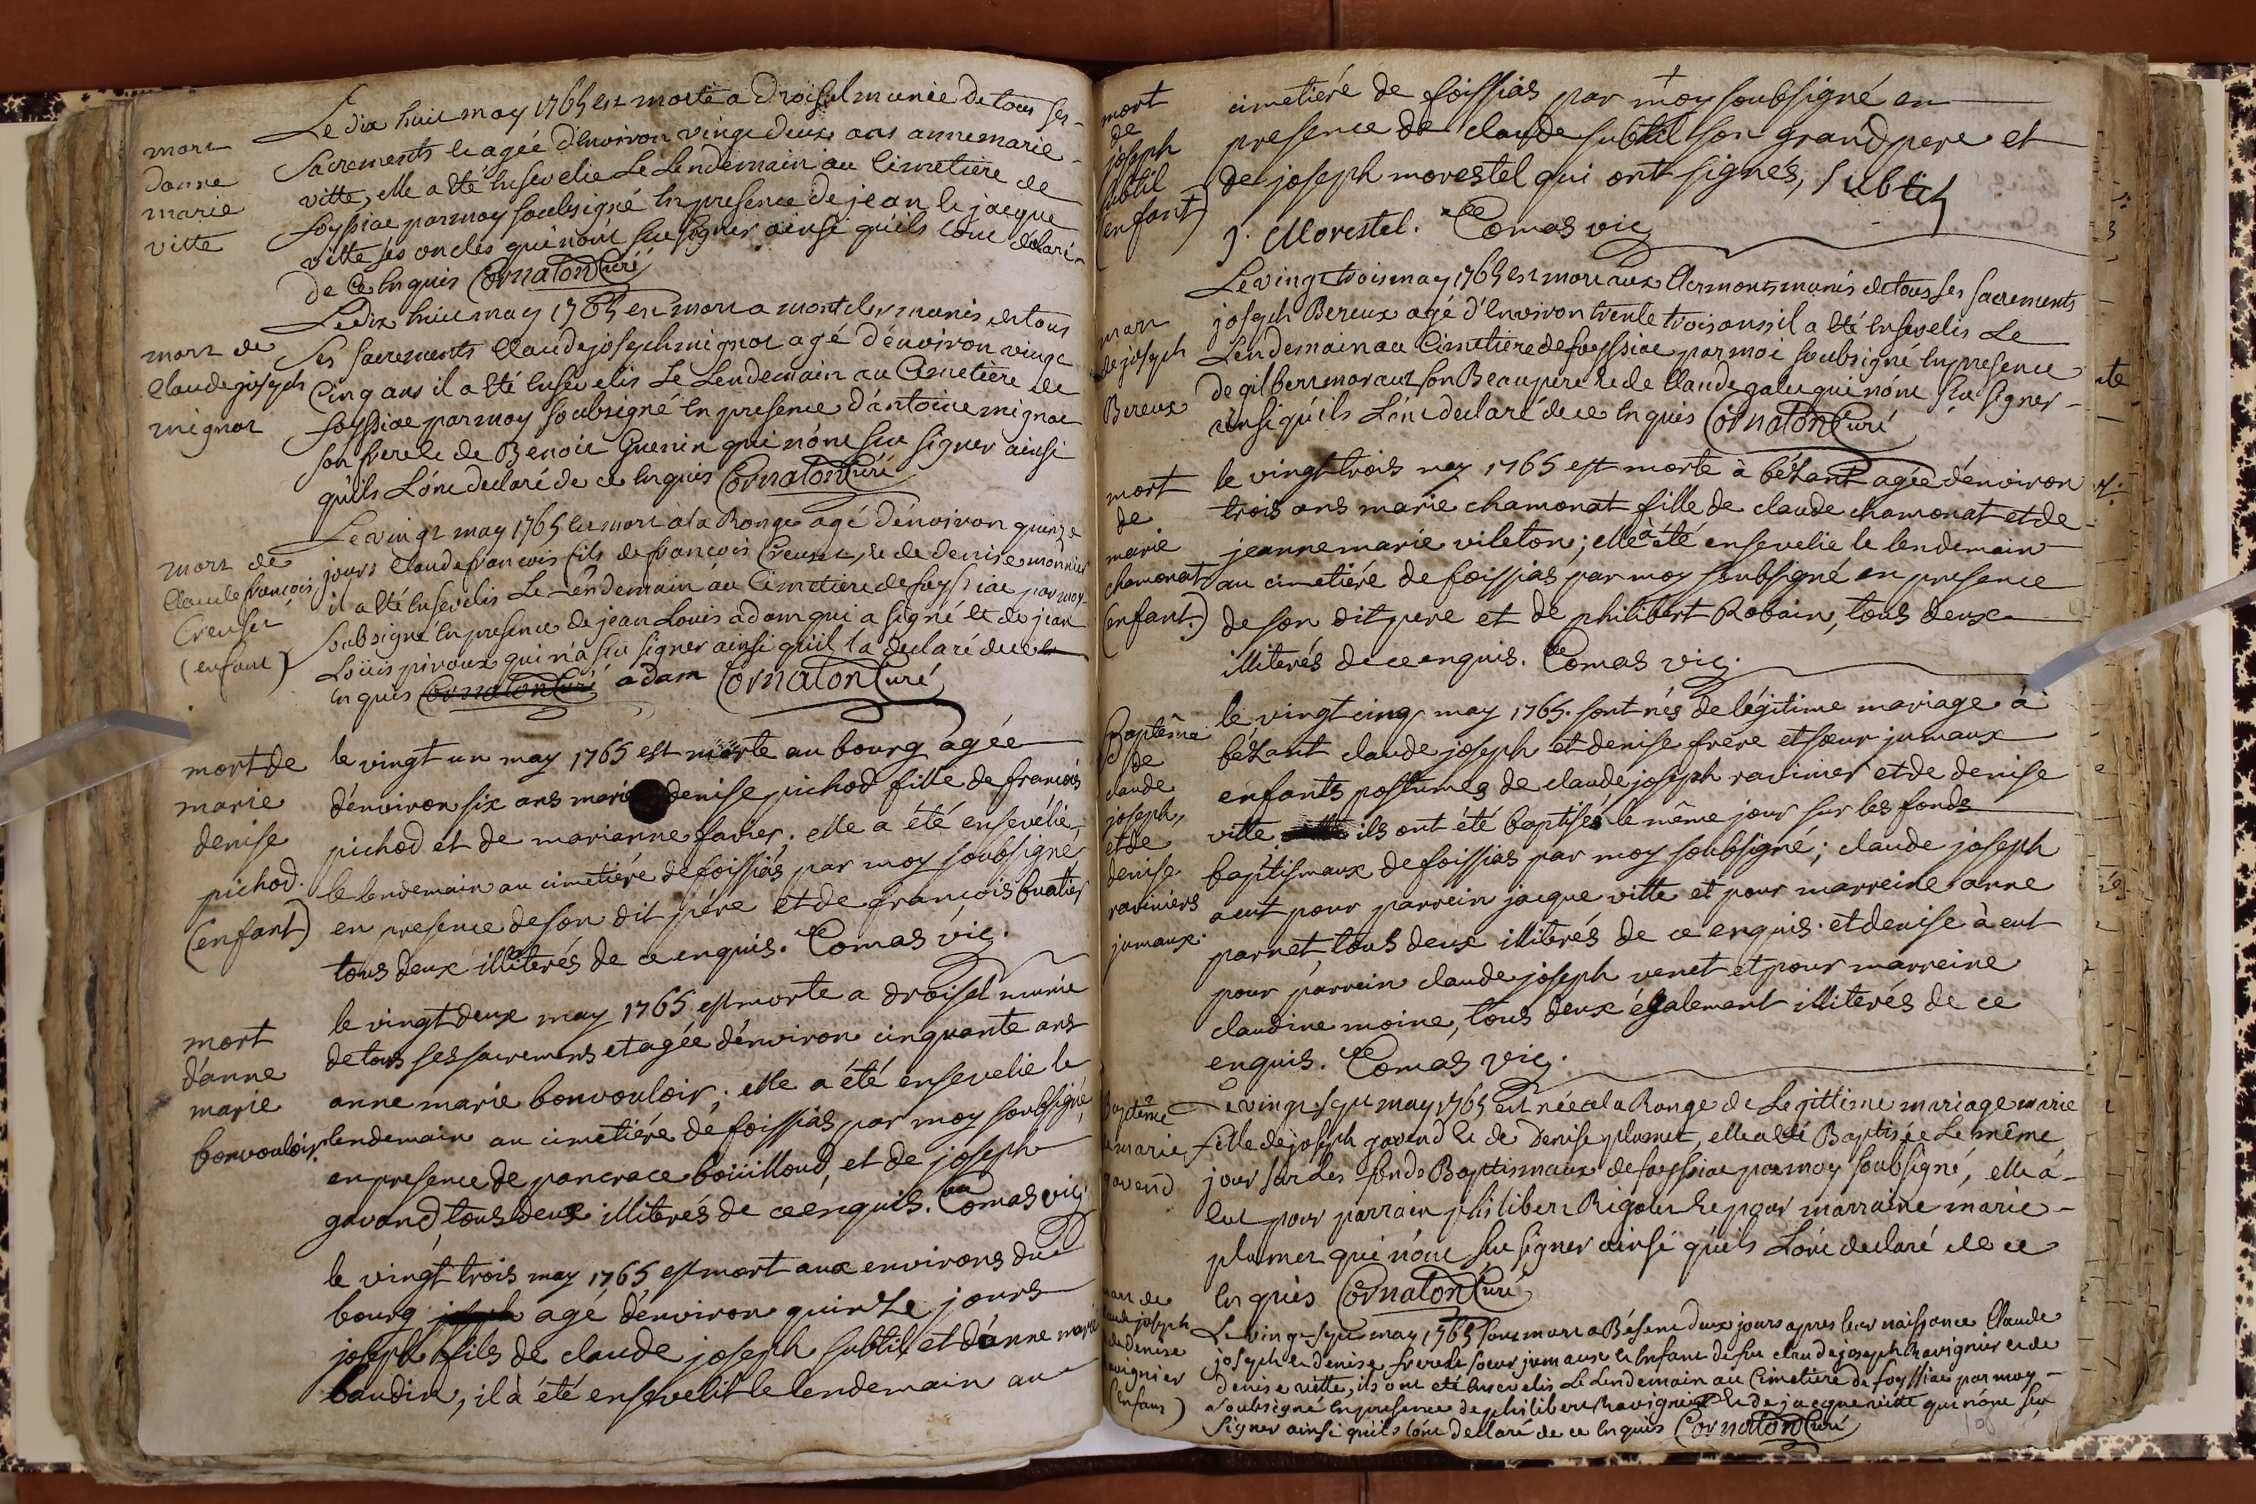 mort
d'anne
marie
vitte
Le dix huit may 1765 est morte a Droisel munie de tous ses
sacrements et agée d'environ vingt deux ans anne marie
vitte, elle a Eté Ensevelie Le Lendemain au Cimetiere de
foyssiac par moy soubsigné En presence de jean et jacque
vitte ses oncles qui n'ont sçu signer ainsi qu'ils L'ont déclaré
de ce Enquis Cornaton Curé
mort de
Claude joseph
mignot
Le dix huit may 1765 est mort a montcler munis de tous
Ses sacrements Claude joseph mignot agé d'environ vingt
Cinq ans il a Eté Ensevelis Le Lendemain au Cimetiere de
foyssiac par moy soubsigné En presence d'antoine mignot
son frere et de Benoit Guenin qui n'ont sçu signer ainsi
qu'ils L'ont declaré de ce Enquis Cornaton Curé
mort de
Claude françois
Creuset
(enfant)
Le vingt may 1765 est mort a la Ronge agé d'environ quinze
jours Claude francois fils de françois Creuset, et de denise monnier
il a Eté Ensevelis Le Lendemain au Cimetiere de foyssiac par moy
soubsigné En presence de jean Louis adam qui a signé et de jean
Loüis piroux qui n'a sçu signer ainsi qu'il l'a declaré de ce
Enquis Cornaton Curé adam Cornaton Curé
mort de
marie
denise
pichod.
(enfant)
le vingt un may 1765 est morte au bourg agée
d'environ six ans marie denise pichod fille de françois
pichod et de marianne favier; elle a été ensevélie
le lendemain au cimetiére de foissias par moy soubsigné
en presence de son dit pére et de françois buatier
tous deux illiterés de ce enquis. Comas vic.
mort
d'anne
marie
bonvouloir.
le vingt deux may 1765 est morte a droisel munie
de tous ses sacremens et agée d'environ cinquante ans
anne marie bonvouloir; elle a été ensevelie le
lendemain au cimetiére de foissias par moy soubsigné
en presence de pancrace boüilloud, et de joseph
gavand, tous deux illiterés de ce enquis. Comas vic.
le vingt trois may 1765 est mort aux environs du
bourg agé d'environ quinze jours
joseph fils de claude joseph subtil, et d'anne marie
baudin, il à été ensevelit le lendemain au
mort
de
joseph
subtil
(enfant)
cimetiéré de foissias par moy soubsigné en
presence de claude subtil son grand pere et
de joseph morestel qui ont signés, Subtil
J. Morestel. Comas vic
mort
de joseph
Bereux
Le vingt trois may 1765 est mort aux Clermonts munis de tous ses sacrements
joseph Bereux agé d'Environ trente trois ans il a Eté Ensevelis Le
Lendemain au Cimetiere de foyssiac par moi soubsigné En presence
de gilbert moraux son Beaupere et de Claude galet qui n'ont sçu signer
ainsi qu'ils L'ont declaré de ce Enquis Cornaton Curé
mort
de
marie
chamonat
(enfant.)
le vingt trois may 1765 est morte à bézant agée d'environ
trois ans marie chamonat fille de claude chamonat et de
jeanne marie vileton; elle à été ensevelie le lendemain
au cimetiére de foissias par moy soubsigné en presence
de son dit pere et de philibert Robain, tous deux
illiterés de ce enquis. Comas vic.
Baptême
de
claude
joseph,
et de
denise
raviniers
jumaux.
le vingt cinq may 1765. sont nés de légitime mariage à
bézant claude joseph et denise frère et sœur jumaux
enfants postumes de claude joseph ravinier et de denise
vitte. ils ont été baptisés le même jour sur les fonds
baptismaux de foissias par moy soubsigné; claude joseph
a eut pour parrein jacque vitte et pour marreine anne
parnet, tous deux illiterés de ce enquis. et denise à eut
pour parrein claude joseph venet et pour marreine
claudine moine, tous deux également illiterés de ce
enquis. Comas vic.
baptême
marie
gavend
Le vingt sept may 1765 est née a la Ronge de Legittime mariage marie
fille de joseph gavend et de Denise plumet, elle a Eté Baptisée Le même
jour sur Les fonds Baptismaux de foyssiac par moy soubsigné, elle à
Eut pour parrain philibert Rigolet et pour marraine marie
plumet qui n'ont sçu signer ainsi qu'ils L'ont declaré de ce
Enquis Cornaton Curé
mort de
claude joseph
et denise
ravignier
(Enfans)
Le vingt sept may 1765 sont mort a Bésent deux jours apres leur naissance Claude
joseph et denise frere et soeur jumaux et Enfant de feu claude joseph Ravignier et de
denise vitte, ils ont eté Ensevelis Le Lendemain au Cimetiere de foyssiac par moy
soubsigné En presence de philibert Ravignier et de jacque vitte qui n'ont sçu
signer ainsi qu'ils l'ont declaré de ce Enquis Cornaton Curé